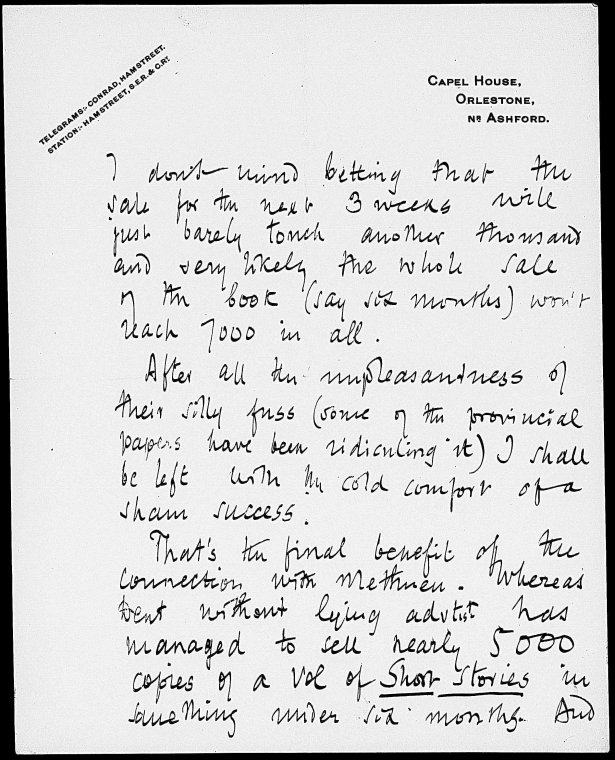 TELEGRAMS:- CONRAD, HAMSTREET.
STATION:- HAMSTREET, S.E.R. & C.RY
CAPEL HOUSE,
ORLESTONE,
NR ASHFORD.
I don't mind betting that the
sale for the next 3 weeks will
just barely touch another thousand
and very likely the whole sale
of the book (say six months) won't
reach 7000 in all.
After all the unpleasandness of
their silly fuss (some of the provincial
papers have been ridiculing it) I shall
be left with the cold comfort of a
sham success.
That's the final benefit of the
connection with Methuen. Whereas
Dent without lying advtist has
managed to sell nearly 5000
copies of a vol of Short Stories in
something under six months. And